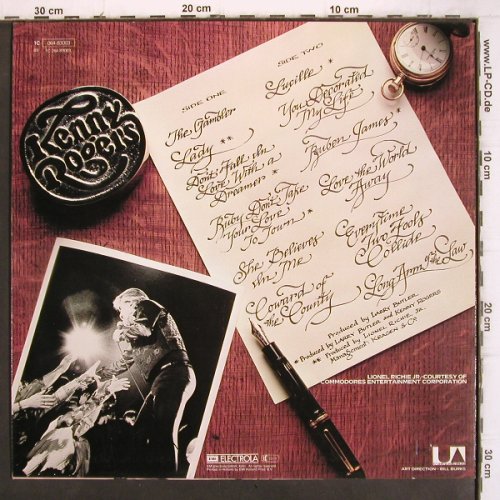 30 cm
20 cm
10 cm
www.LP-CD.de
10 cm
20 cm
30 cm
Kenny
Rogers
SIDE ONE
The Gambler
Lady **
Don't Fall In
Love With a
Dreamer *
Ruby Don't Take
Your Love
To Town *
She Believes
In Me
Coward of
the County
SIDE TWO
Lucille *
You Decorated
My Life
Reuben James *
Love the World
Away
Every Time
Two Fools
Collide
Long Arm of the Law
Produced by LARRY BUTLER
* Produced by LARRY BUTLER and KENNY ROGERS
** Produced by LIONEL RICHIE JR.
Management: KRAGEN & CO
LIONEL RICHIE JR.-COURTESY OF
COMMODORES ENTERTAINMENT CORPORATION
EMI ELECTROLA
UA
ART DIRECTION - BILL BURKS